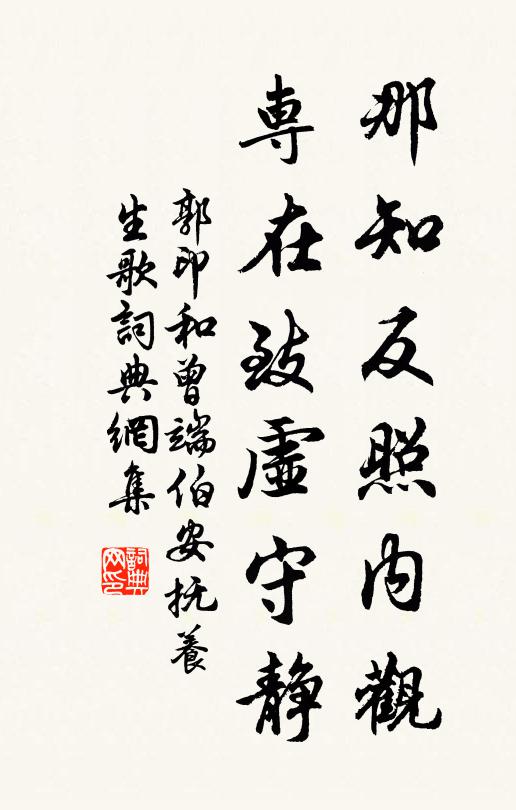 那知反照內觀
専在致虛守静
郭印和曾端伯安抚養
生歌詞典網集
詞典网印